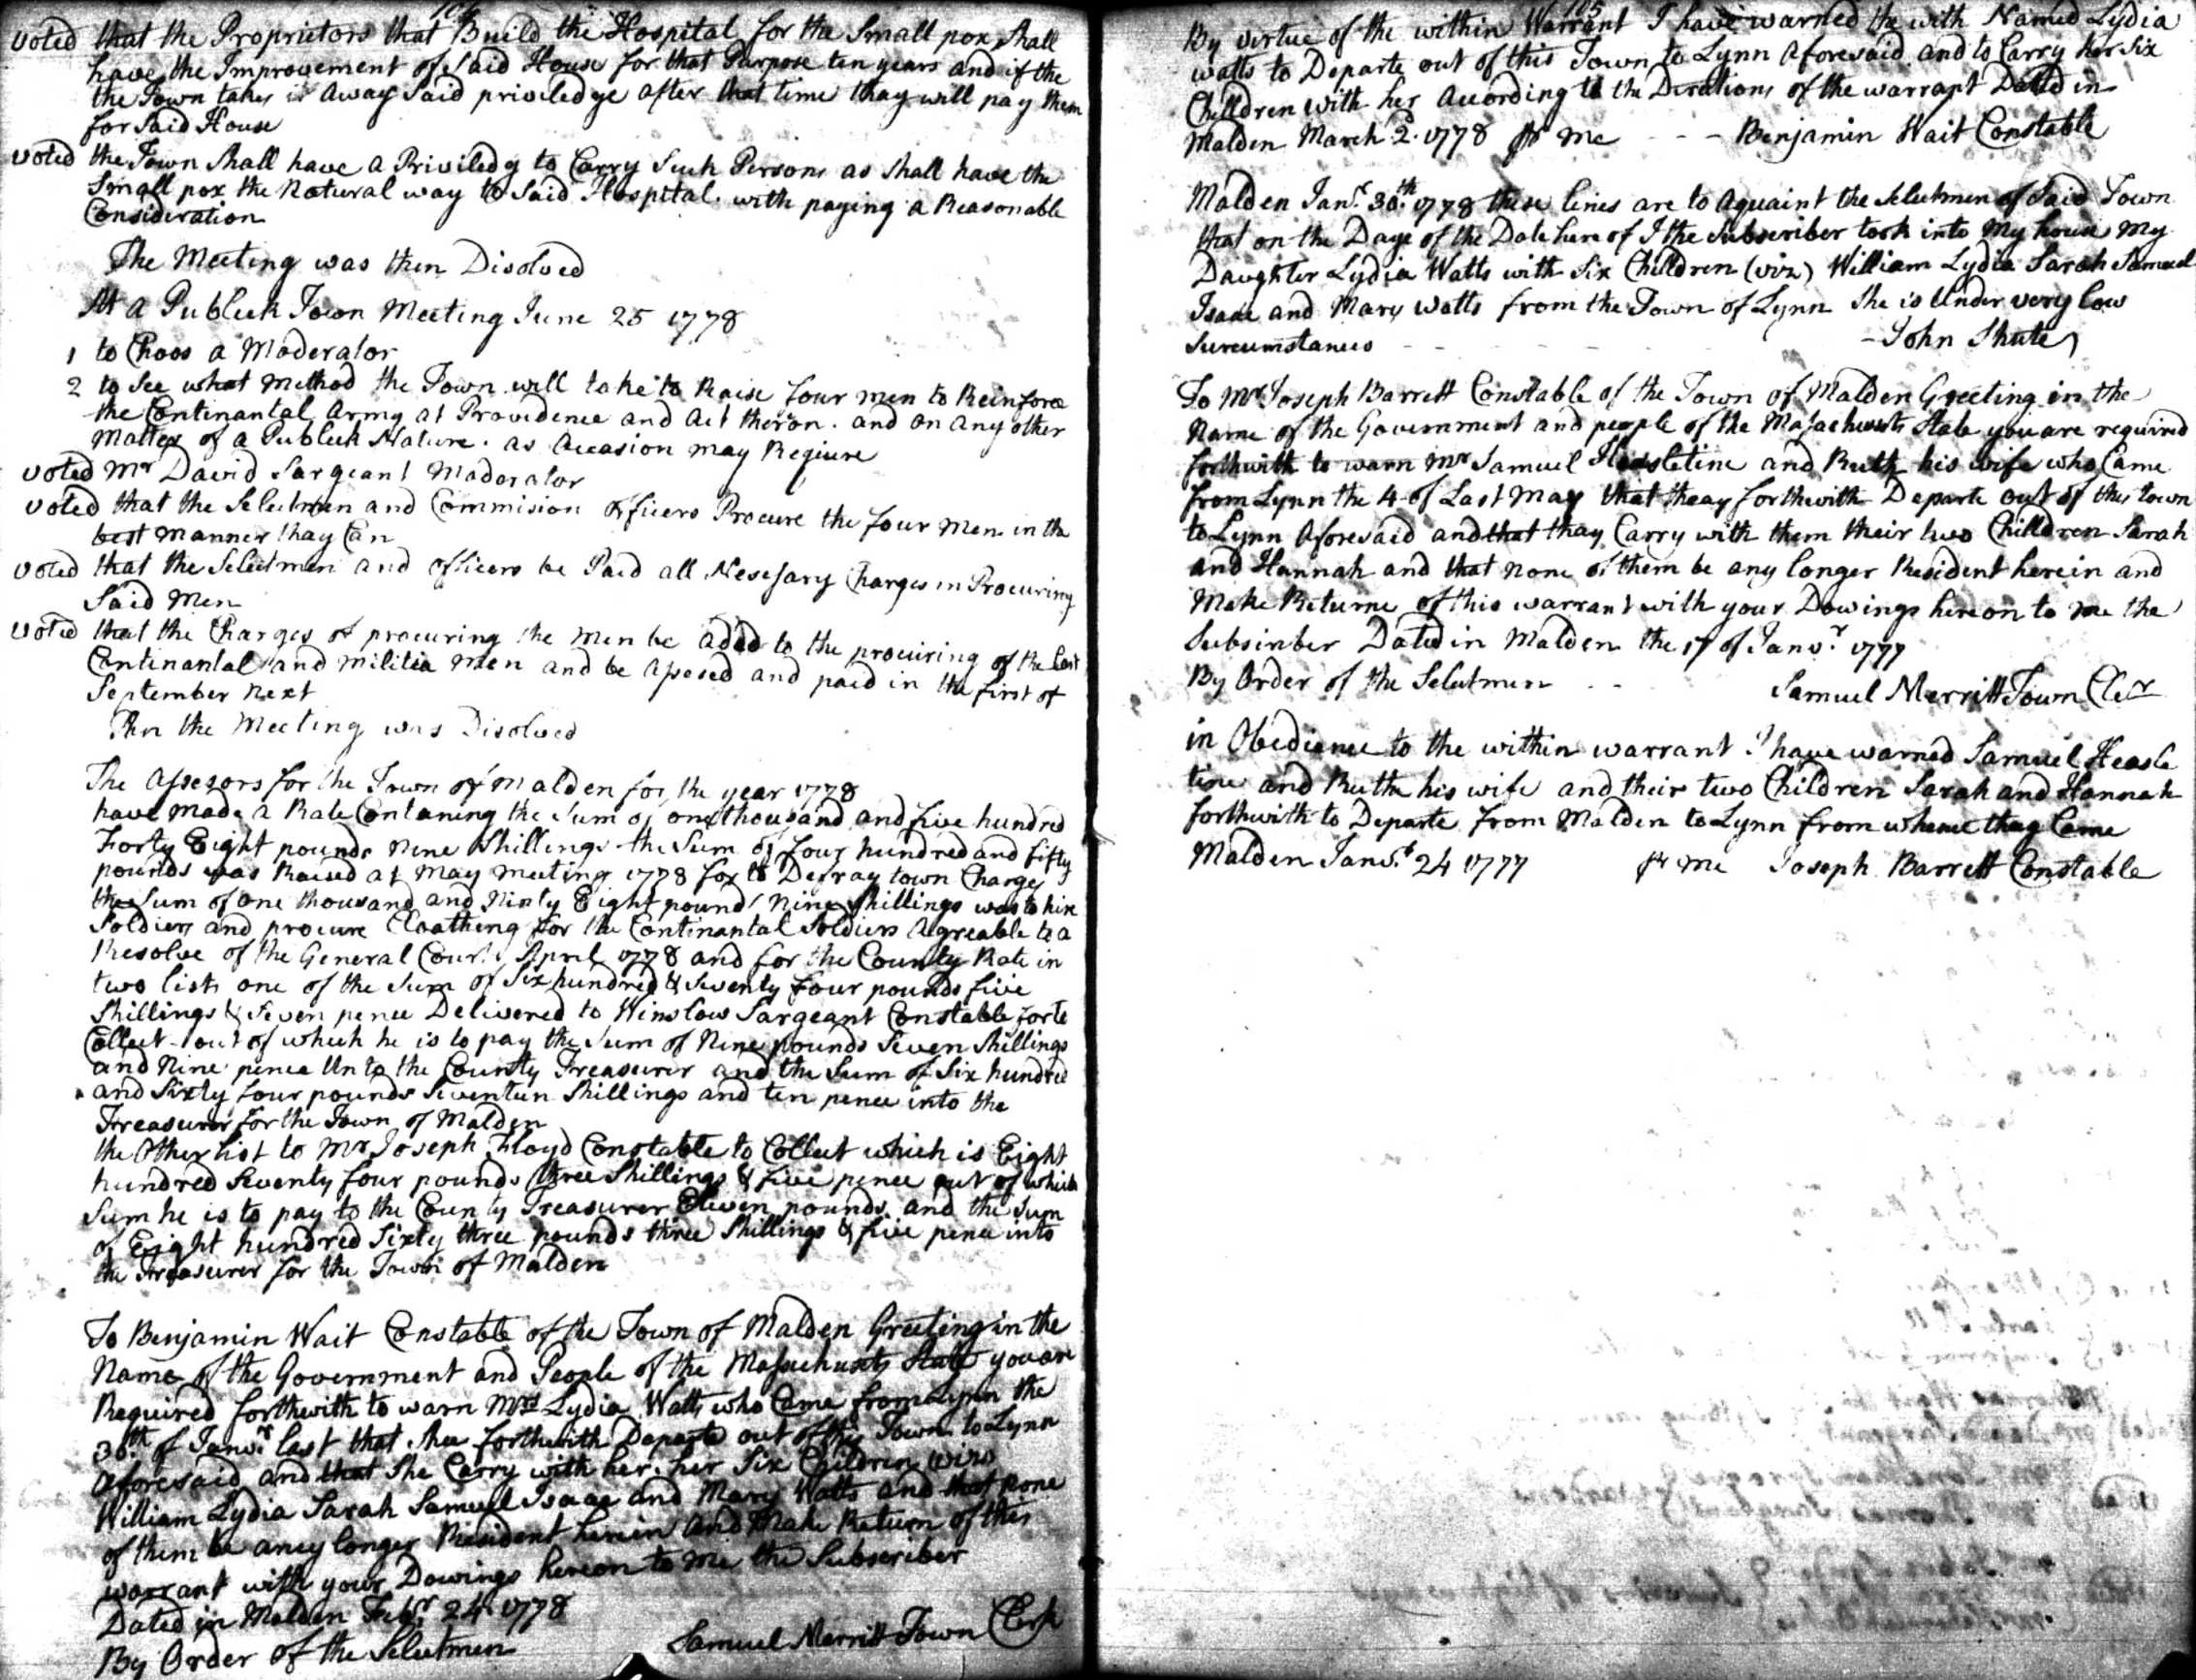 104
Voted that the Proprietors that Build the Hospital for the Small pox Shall
have the Improvement of Said House for that Purpose ten years and if the
the Town takes it away Said priviledge after that time thay will pay them
for Said House
Voted the Town Shall have a Priviledg to Carry Such Persons as Shall have the
Small pox the Natural way to Said Hospital. with paying a Reasonable
Consideration
The Meeting was then Disolved
At a Publeck Town Meeting June 25 1778
1 to Choos a Moderator
2 to See what method the Town will take to Raise four men to Reinforce
the Continantal Army at Providence and Act theron. and on any other
Matter of a Publick Nature. as Occasion may Reqiure
Voted Mr David Sargeant Moderator
Voted that the Selectmen and Commision officers Procure the four men in the
best manner thay Can
Voted that the Selectmen and officers be Paid all Nesessary Charges in Procuring
Said Men
Voted that the Charges of procuring the men be added to the procuring of the last
Continantal and militia men and be assesed and paid in the first of
September next
Then the Meeting was Disolved
The Assesors for the Town of Malden for the year 1778
have made a Rate Contaning the Sum of one thousand and five hundred
Forty Eight pounds nine Shillings the Sum of four hundred and fifty
pounds was Raised at May meeting 1778 for to Defray town Charges
the Sum of one thousand and Ninty Eight pounds nine Shillings was to hire
Soldiers and procure Cloathing for the Continantal Soldiers Agreable to a
Resolve of the General Court April 1778 and for the County Rate in
two lists one of the Sum of Six hundred & Seventy four pounds five
Shillings & Seven pence Delivered to Winslow Sargeant Constable for to
Collect out of which he is to pay the Sum of Nine pounds Seven Shillings
and Nine pence Unto the County Treasurer and the Sum of Six hundred
and Sixty four pounds Seventeen Shillings and ten pence into the
Treasurer for the Town of Malden
the Other list to Mr Joseph Floyd Constable to Collect which is Eight
hundred Seventy four pounds three Shillings & five pence out of which
Sum he is to pay to the County Treasurer Eleven pounds and the Sum
of Eight hundred Sixty three pounds three Shillings & five pence into
the Treasurer for the Town of Malden
To Benjamin Wait Constable of the Town of Malden Greeting in the
Name of the Government and People of the Massachusets State you are
Required forthwith to warn Mrs Lydia Watts who Came from Lynn the
30th of Janur last that She forthwith Departe out of this Town to Lynn
aforesaid and that She Carry with her. her Six Children (viz)
William Lydia Sarah Samuel Isaac and Mary Watts and that none
of them be aney longer Resident herein and Make Return of this
warrant with your Dowings hereon to me the Subscriber
Dated in Malden Febr 24 1778
By Order of the Selectmen Samuel Merritt Town Clerk
105
By virtue of the within Warrant I have warned the with Named Lydia
watts to Departe out of this Town to Lynn Aforesaid and to Carry her Six
Children with her According to the Dirations of the warrant Dated in
Malden March 2. 1778 pr me - - Benjamin Wait Constable
Malden Janr 30th 1778 these lines are to Aquaint the Selectmen of Said Town
that on the Daye of the Date here of I the Subscriber took into My house My
Daughter Lydia Watts with Six Children (viz) William Lydia Sarah Samuel
Isaac and Mary watts from the Town of Lynn She is Under very low
Surcumstances - John Shute
To Mr Joseph Barrett Constable of the Town of Malden Greeting in the
Name of the Government and people of the Massachusets State you are required
forthwith to warn Mr Samuel Heasletine and Ruth his wife who Came
from Lynn the 4 of Last May that thay forthwith Departe out of this town
to Lynn Aforesaid and that thay Carry with them their two Children Sarah
and Hannah and that none of them be any longer Resident herein and
Make Returne of this warrant with your Dowings hereon to me the
Subsinber Dated in Malden the 17 of Janur 1777
By Order of the Selectmen - - Samuel Merritt Town Cler
in Obedience to the within warrant I have warned Samuel Heasle
tine and Ruth his wife and their two Children Sarah and Hannah
forthwith to Departe from Malden to Lynn from whence thay Came
Malden Janur 24 1777 pr me Joseph Barrett Constable